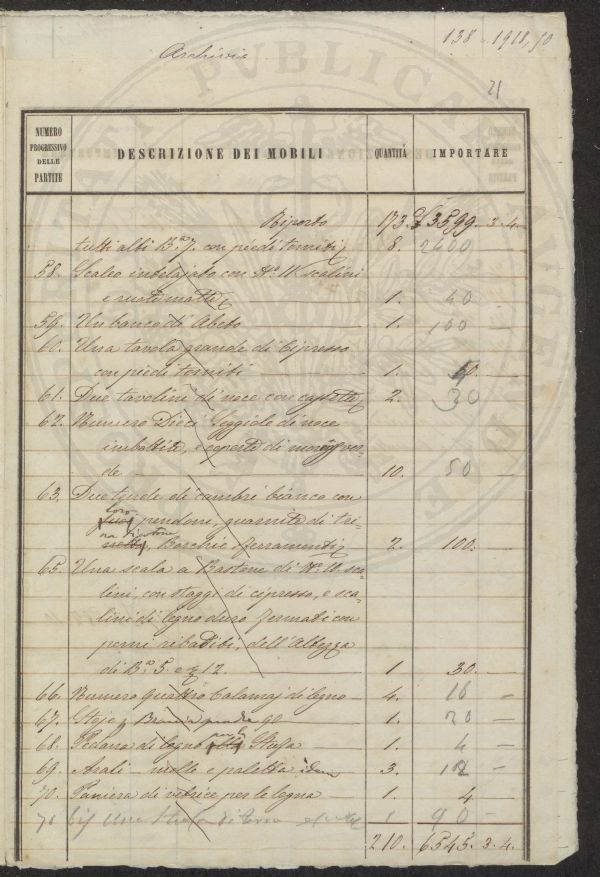 138 - 1911, 50
Archivio
21
NUMERO PROGRESSIVO DELLE PARTITE
DESCRIZIONE DEI MOBILI
QUANTITÀ
IMPORTARE
Riporto 173. £ 3599. 3. 4.
tutti alti Bª 7. con piedi torniti 8. 2400
58. Scaleo intelajato con Nº 11 scalini
e ruote matte 1. 40
59. Un banco di Abeto 1. 100
60. Una tavola grande di Cipresso
con piedi torniti 1. 50.
61. Due tavolini di noce con cassette 2. 30
62. Numero Dieci Seggiole di noce
imbottite, e coperte di ver-
de 10. 50
63. Due tende di cambrì bianco con
loro pendoni, guarnite di tri-
na di cotone, Borchie e ferramenti 2. 100.
65. Una scala a Bastone di Nº 11. sca-
lini, con staggi di cipresso, e sca-
lini di legno duro fermati con
perni ribaditi, dell'Altezza
di Bª 5. e 12 1 30.
66. Numero quattro Calamaj di legno 4. 16
67. Stoje Braccia quadre 90 1. 20
68. Pedana di legno per la Stufa 1. 4
69. Arali molle e paletta idem 3. 12
70. Paniera di vetrice per le legna 1. 4
71 bis Una Stufa di 1 90
210. 6545. 3. 4.